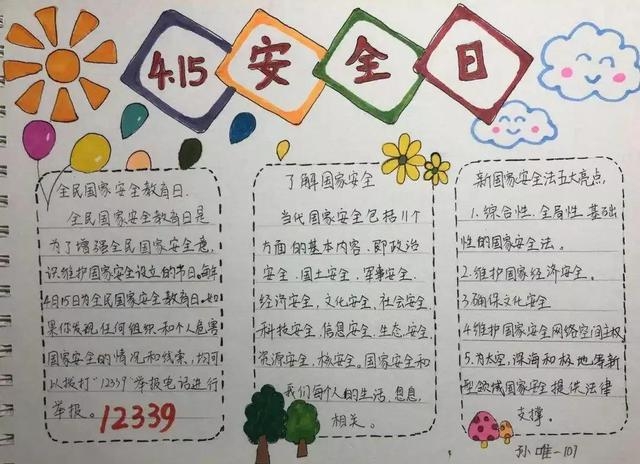 4.15安全日
全民国家安全教育日.
全民国家安全教育日是
为了增强全民国家安全意
识维护国家安全设立的节日。每年
4月15日为全民国家安全教育日.如
果你发现任何组织和个人危害
国家安全的情况和线索，均可
以拨打"12339"举报电话进行
举报。
12339
了解国家安全
当代国家安全包括11个
方面的基本内容.即政治
安全.国土安全.军事安全.
经济安全，文化安全，社会安全
科技安全，信息安全.生态.安全
资源安全，核安全。国家安全和
我们每个人的生活.息息.
相关。
新国家安全法五大亮点，
1.综合性.全局性.基础
性的国家安全法。
2.维护国家经济安全。
3.确保文化安全
4维护国家安全网络空间主权
5.为太空，深海和极地等新
型领域国家安全提供法律
支撑。
孙唯一107